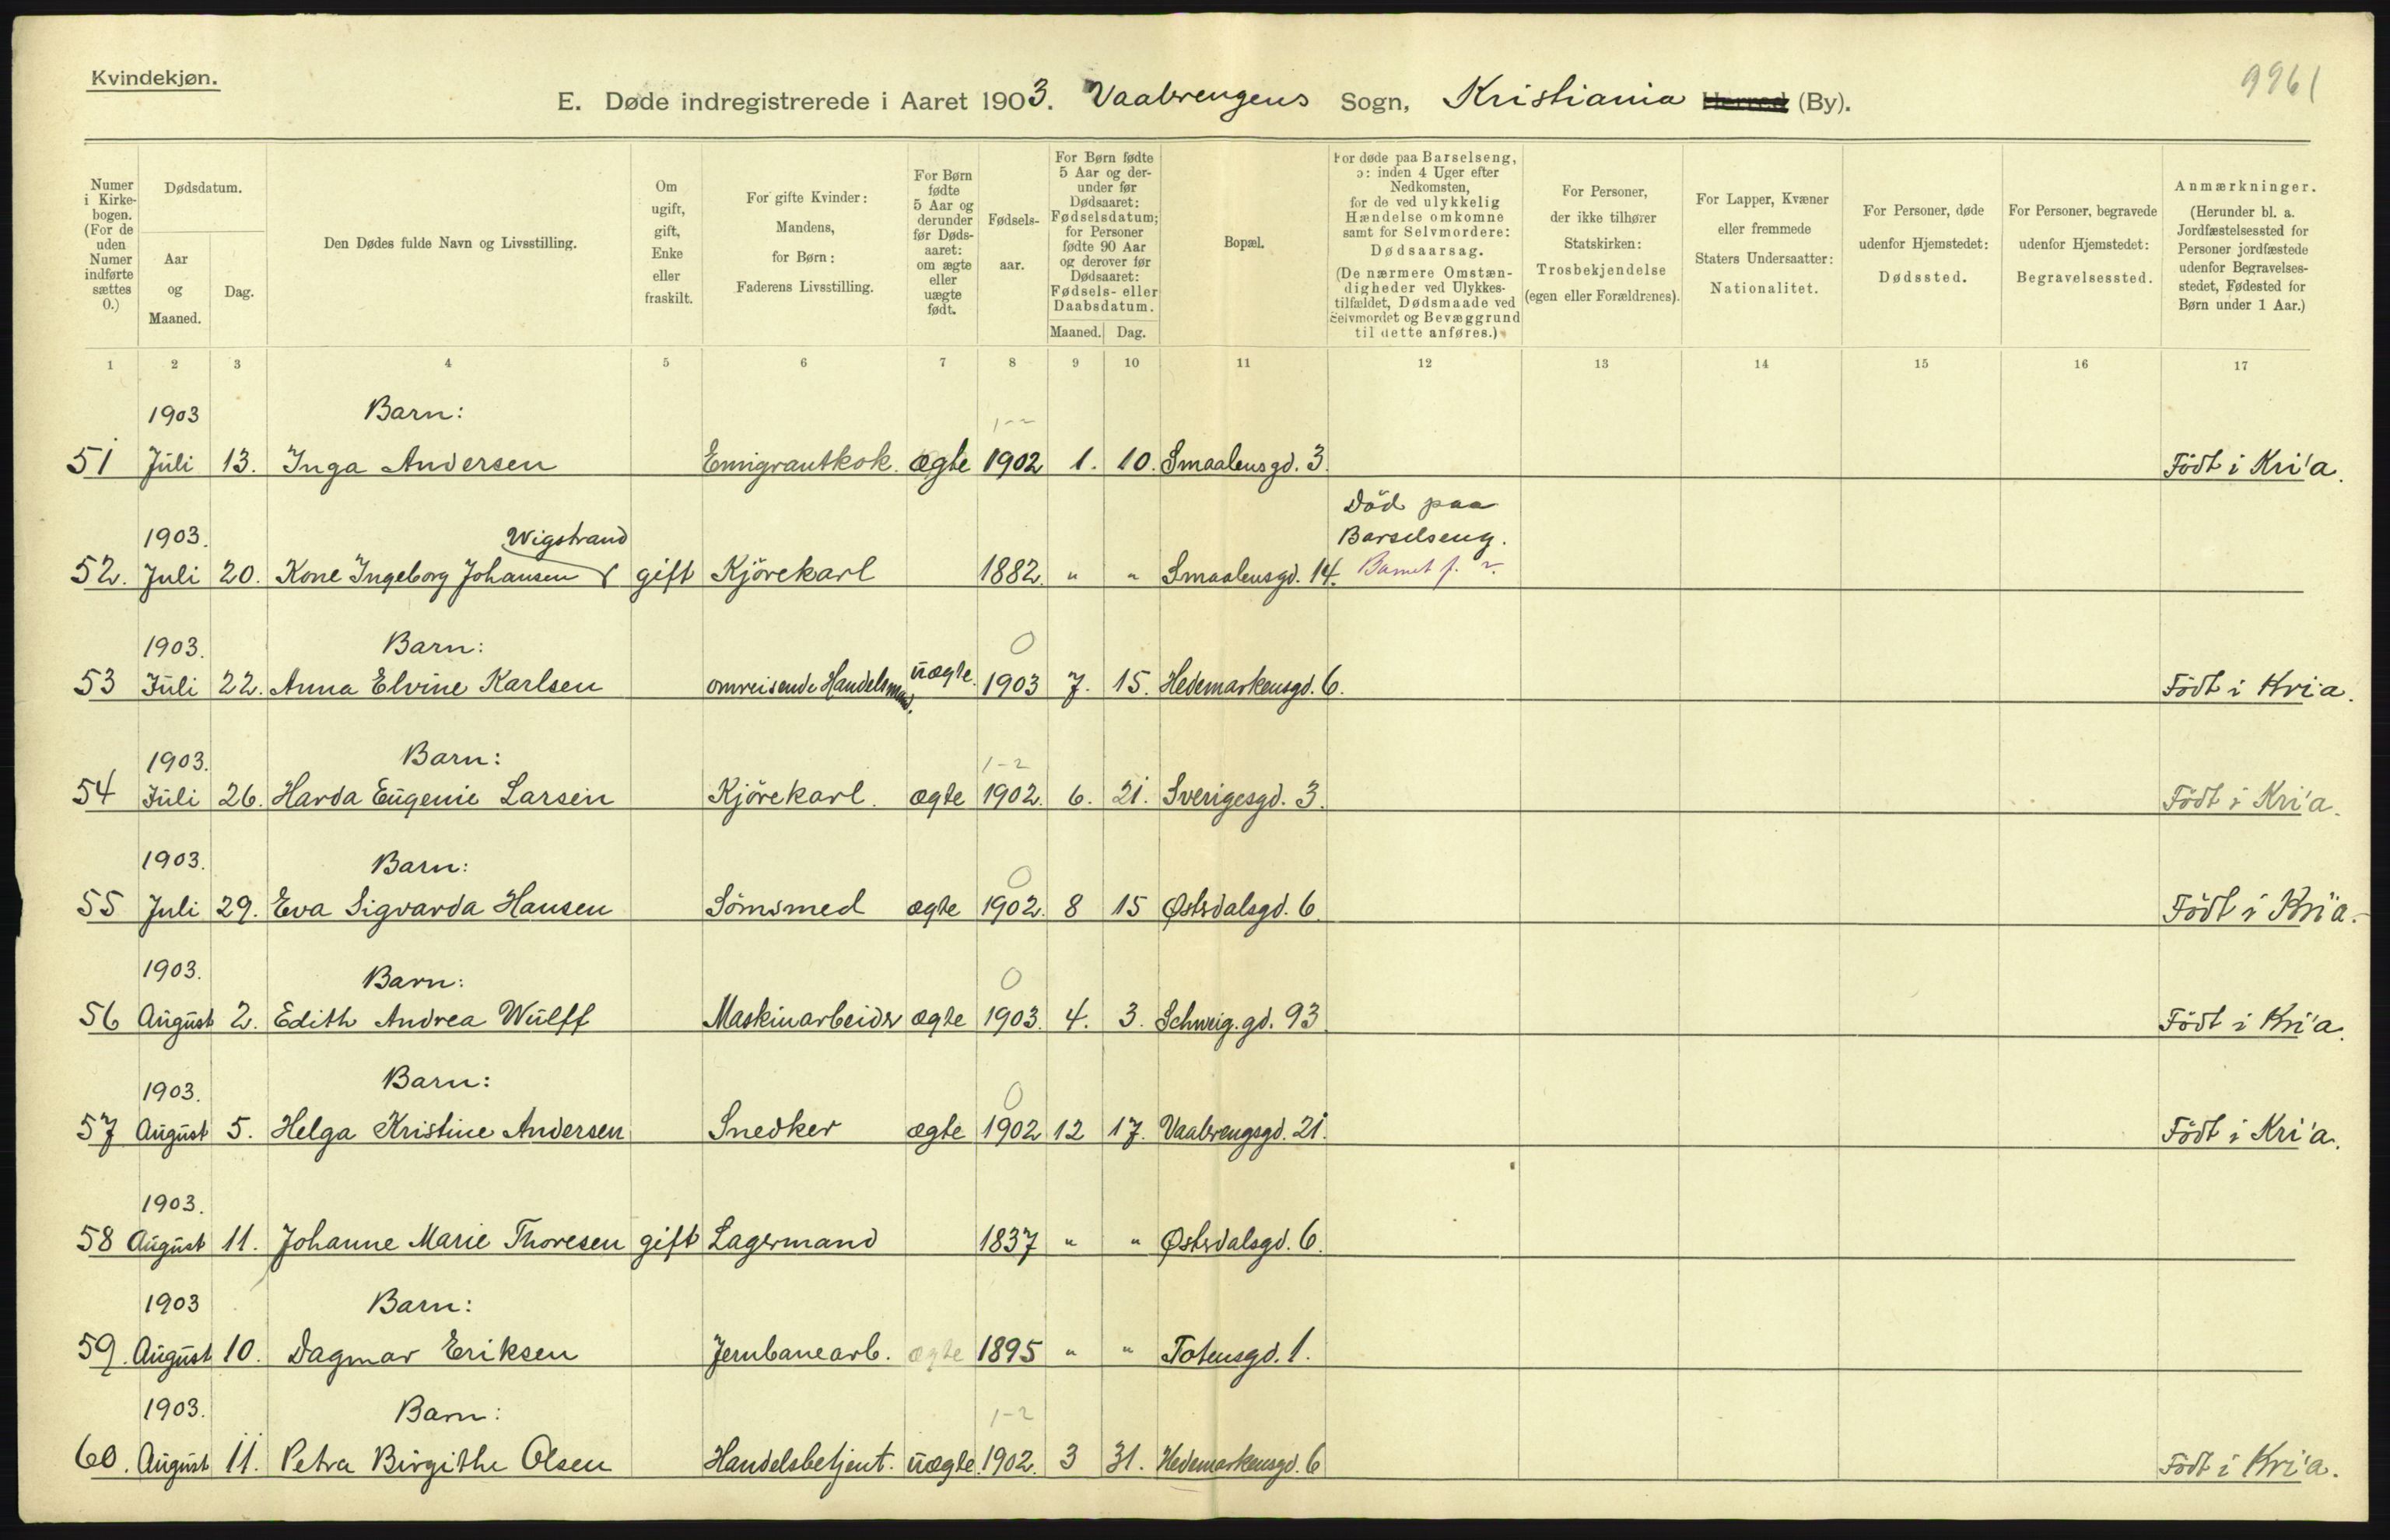 Kvindekjøn.
9961
E. Døde indregistrerede i Aaret 1903. Vaalerengens Sogn, Kristiania Herred (By).
Numer i Kirkebogen. (For de uden Numer indførte sættes 0.)
Dødsdatum.
Aar og Maaned.
Dag.
Den Dødes fulde Navn og Livsstilling.
Om ugift, gift, Enke eller fraskilt.
For gifte Kvinder: Mandens, for Børn: Faderens Livsstilling.
For Børn fødte 5 Aar og derunder før Dødsaaret: om ægte eller uægte født.
Fødselsaar.
For Børn fødte 5 Aar og derunder før Dødsaaret: Fødselsdatum; for Personer fødte 90 Aar og derover før Dødsaaret: Fødsels- eller Daabsdatum.
Maaned. Dag.
Bopæl.
For døde paa Barselseng, ɔ: inden 4 Uger efter Nedkomsten, for de ved ulykkelig Hændelse omkomne samt for Selvmordere: Dødsaarsag. (De nærmere Omstændigheder ved Ulykkestilfældet, Dødsmaade ved Selvmordet og Bevæggrund til dette anføres.)
For Personer, der ikke tilhører Statskirken: Trosbekjendelse (egen eller Forældrenes).
For Lapper, Kvæner eller fremmede Staters Undersaatter: Nationalitet.
For Personer, døde udenfor Hjemstedet: Dødssted.
For Personer, begravede udenfor Hjemstedet: Begravelsessted.
Anmærkninger. (Herunder bl. a. Jordfæstelsessted for Personer jordfæstede udenfor Begravelsesstedet, Fødested for Børn under 1 Aar.)
1 2 3 4 5 6 7 8 9 10 11 12 13 14 15 16 17
1903 Barn: 1-2
51 Juli 13. Inga Andersen Emigrantkok. ægte 1902 1. 10. Smaalensgd. 3. Født i Kri'a.
Død paa
1903. Wigstrand Barselseng.
52. Juli 20. Kone Ingeborg Johansen gift Kjörekarl 1882. " " Smaalensgd. 14. Barnet f.
1903. Barn: 0
53 Juli 22. Anna Elvine Karlsen omreisende Handelsmand. uægte. 1903 7. 15. Hedemarkensgd. 6. Født i Kri'a.
1903. Barn: 1-2
54 Juli 26. Harda Eugenie Larsen Kjörekarl. ægte 1902. 6. 21. Sverigesgd. 3. Født i Kri'a.
1903. Barn: 0
55 Juli 29. Eva Sigvarda Hansen Sömsmed ægte 1902. 8 15 Østerdalsgd. 6. Født i Kri'a.
1903. Barn: 0
56 August 2. Edith Andrea Wulff Maskinarbeider ægte 1903. 4. 3. Schweig.gd. 93 Født i Kri'a.
1903. Barn: 0
57 August 5. Helga Kristine Andersen Snedker ægte 1902 12 17. Vaalerengsgd. 21. Født i Kri'a.
1903.
58 August 11. Johanne Marie Thoresen gift Lagermand 1837 " " Østerdalsgd. 6.
1903 Barn:
59. August 10. Dagmar Eriksen Jernbanearb. ægte 1895 " " Totensgd. 1.
1903. Barn: 1-2
60. August 11. Petra Birgithe Olsen Handelsbetjent. uægte. 1902. 3 31. Hedemarkensgd. 6 Født i Kri'a.